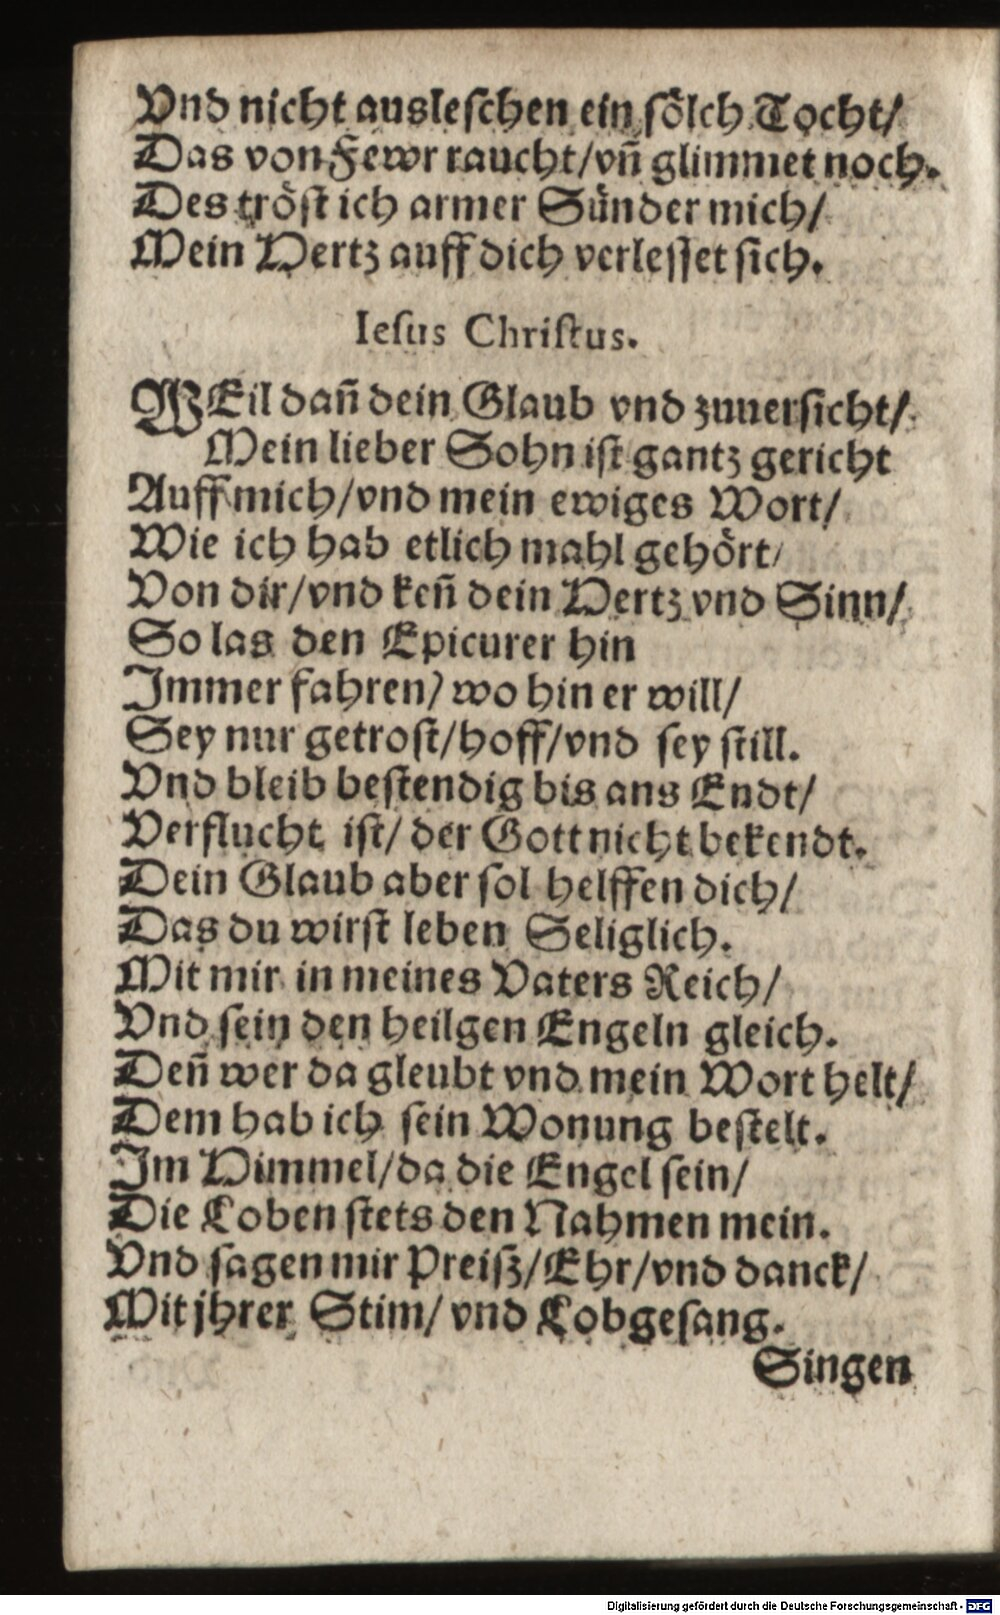 Vnd nicht ausleſchen ein ſoͤlch Tocht/
Das von Fewr raucht/vn̄ glimmet noch.
Des troͤſt ich armer Suͤnder mich/
Mein Hertz auff dich verleſſet ſich.
Ieſus Chriſtus.
WEil dan̄ dein Glaub vnd zuuerſicht/
Mein lieber Sohn iſt gantz gericht
Auff mich/vnd mein ewiges Wort/
Wie ich hab etlich mahl gehoͤrt/
Von dir/vnd ken̄ dein Hertz vnd Sinn/
So las den Epicurer hin
Immer fahren/ wo hin er will/
Sey nur getroſt/hoff/vnd ſey ſtill.
Vnd bleib beſtendig bis ans Endt/
Verflucht iſt/ der Gott nicht bekendt.
Dein Glaub aber ſol helffen dich/
Das du wirſt leben Seliglich.
Mit mir in meines Vaters Reich/
Vnd ſein den heilgen Engeln gleich.
Den̄ wer da gleubt vnd mein Wort helt/
Dem hab ich ſein Wonung beſtelt.
Im Himmel/da die Engel ſein/
Die Loben ſtets den Nahmen mein.
Vnd ſagen mir Preiſz/Ehr/vnd danck/
Mit jhrer Stim/ vnd Lobgeſang.
Singen
Digitalisierung gefördert durch die Deutsche Forschungsgemeinschaft - DFG